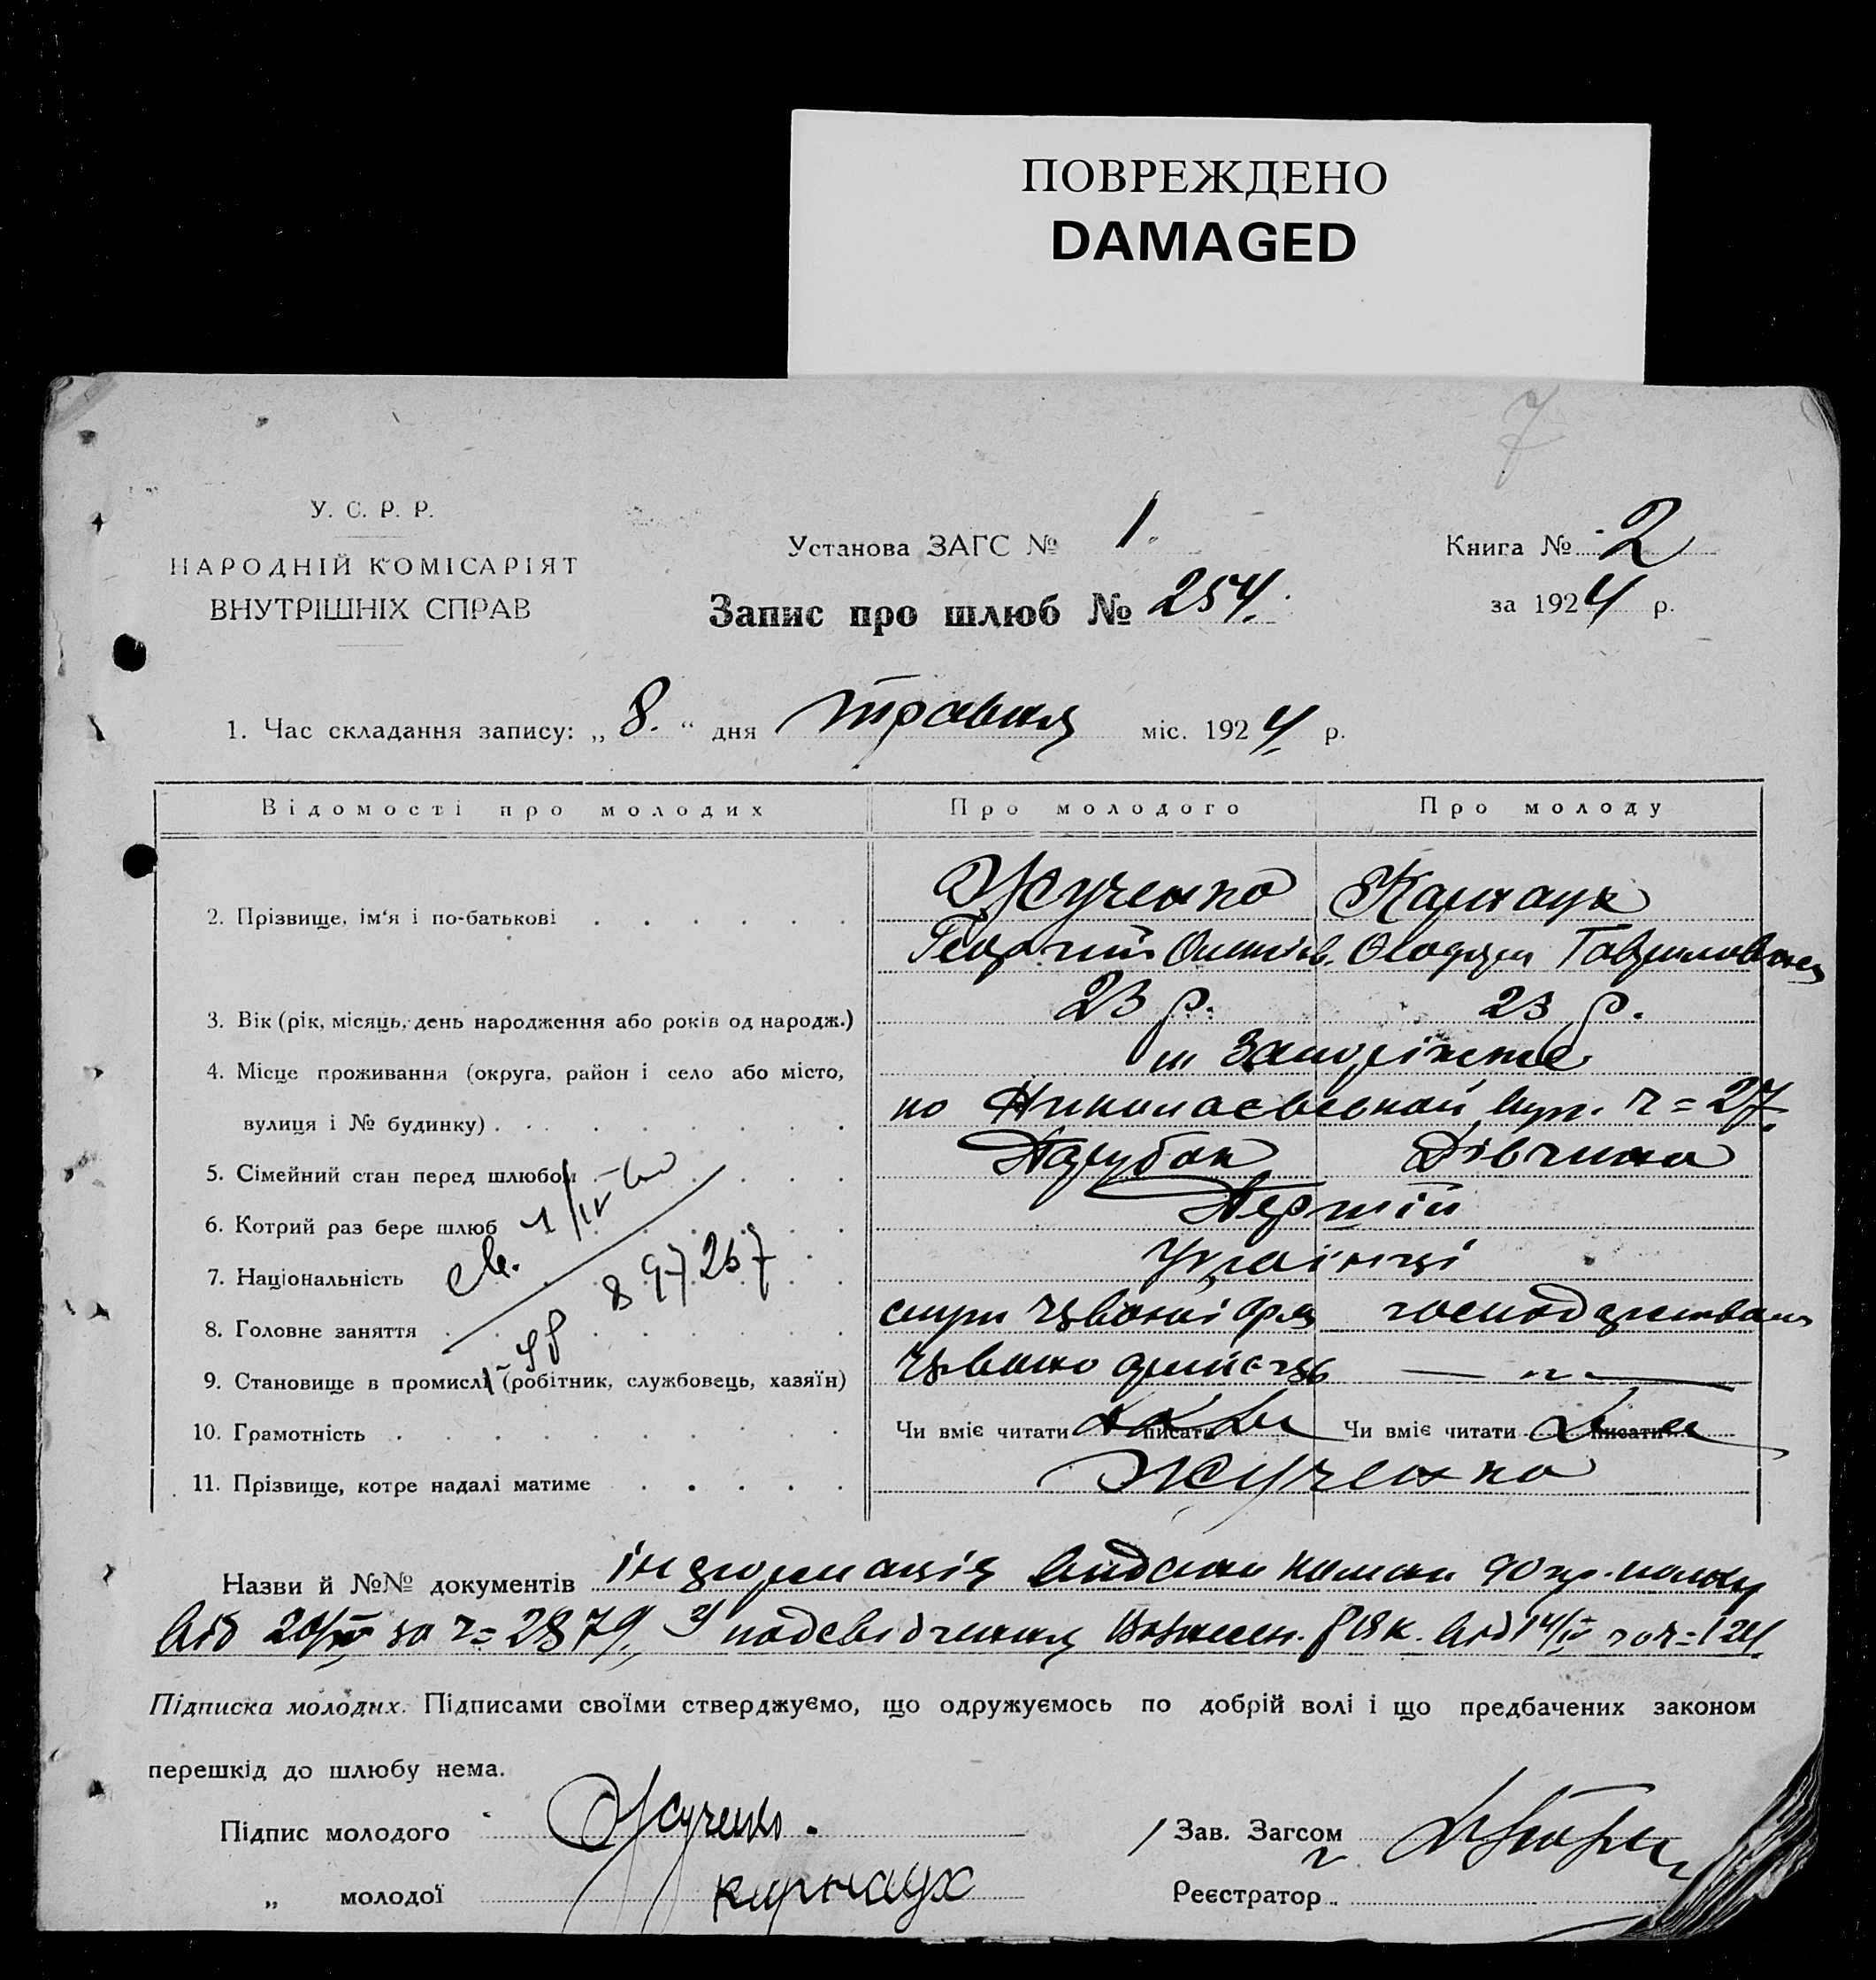 ПОВРЕЖДЕНО
DAMAGED
7
У. С. Р. Р.
НАРОДНІЙ КОМІСАРІЯТ
ВНУТРІШНІХ СПРАВ
Установа ЗАГС № 1.
Запис про шлюб № 254.
Книга № 2
за 1924 р.
1. Час складання запису: „ 8. “ дня травня міс. 1924 р.
Відомості про молодих Про молодого Про молоду
2. Прізвище, ім'я і по-батькові Жученко Карнаух
Георгий
3. Вік (рік, місяць, день народження або років од народж.) 23 р. 23 р.
4. Місце проживання (округа, район і село або місто, м Запоріжжє
вулиця і № будинку) по Николаєвської вул. ч = 27
5. Сімейний стан перед шлюбом Парубок Дівчина
6. Котрий раз бере шлюб Перший
7. Національність Українці
8. Головне заняття
св. 1/IV
897267
9. Становище в промислі (робітник, службовець, хазяїн) — „ —
10. Грамотність Чи вміє читати писати Чи вміє читати писати
11. Прізвище, котре надалі матиме Жученко
Назви й №№ документів інформація 90 полку
від за ч = 2879, й подсвідчення від 14/IV за ч = 124
Підписка молодих. Підписами своїми стверджуємо, що одружуємось по добрій волі і що предбачених законом
перешкід до шлюбу нема.
Підпис молодого Жученко.
„ молодої карнаух
Зав. Загсом
Реєстратор